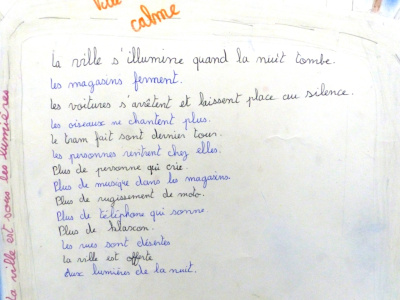 ville
calme
La ville s'illumine quand la nuit tombe.
Les magasins ferment.
Les voitures s'arrêtent et laissent place au silence.
Les oiseaux ne chantent plus.
Le tram fait sont dernier tour.
Les personnes rentrent chez elles.
Plus de personne qui crie.
Plus de musique dans les magasins.
Plus de rugissement de moto.
Plus de téléphone qui sonne.
Plus de klaxon.
Les rues sont désertes
La ville est offerte
aux lumières de la nuit.
la ville est sous les lumières